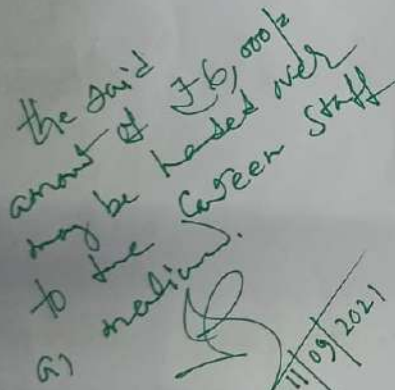 the said
amount of ₹6,000/-
may be handed over
to the Canteen Staff
as
11/09/2021